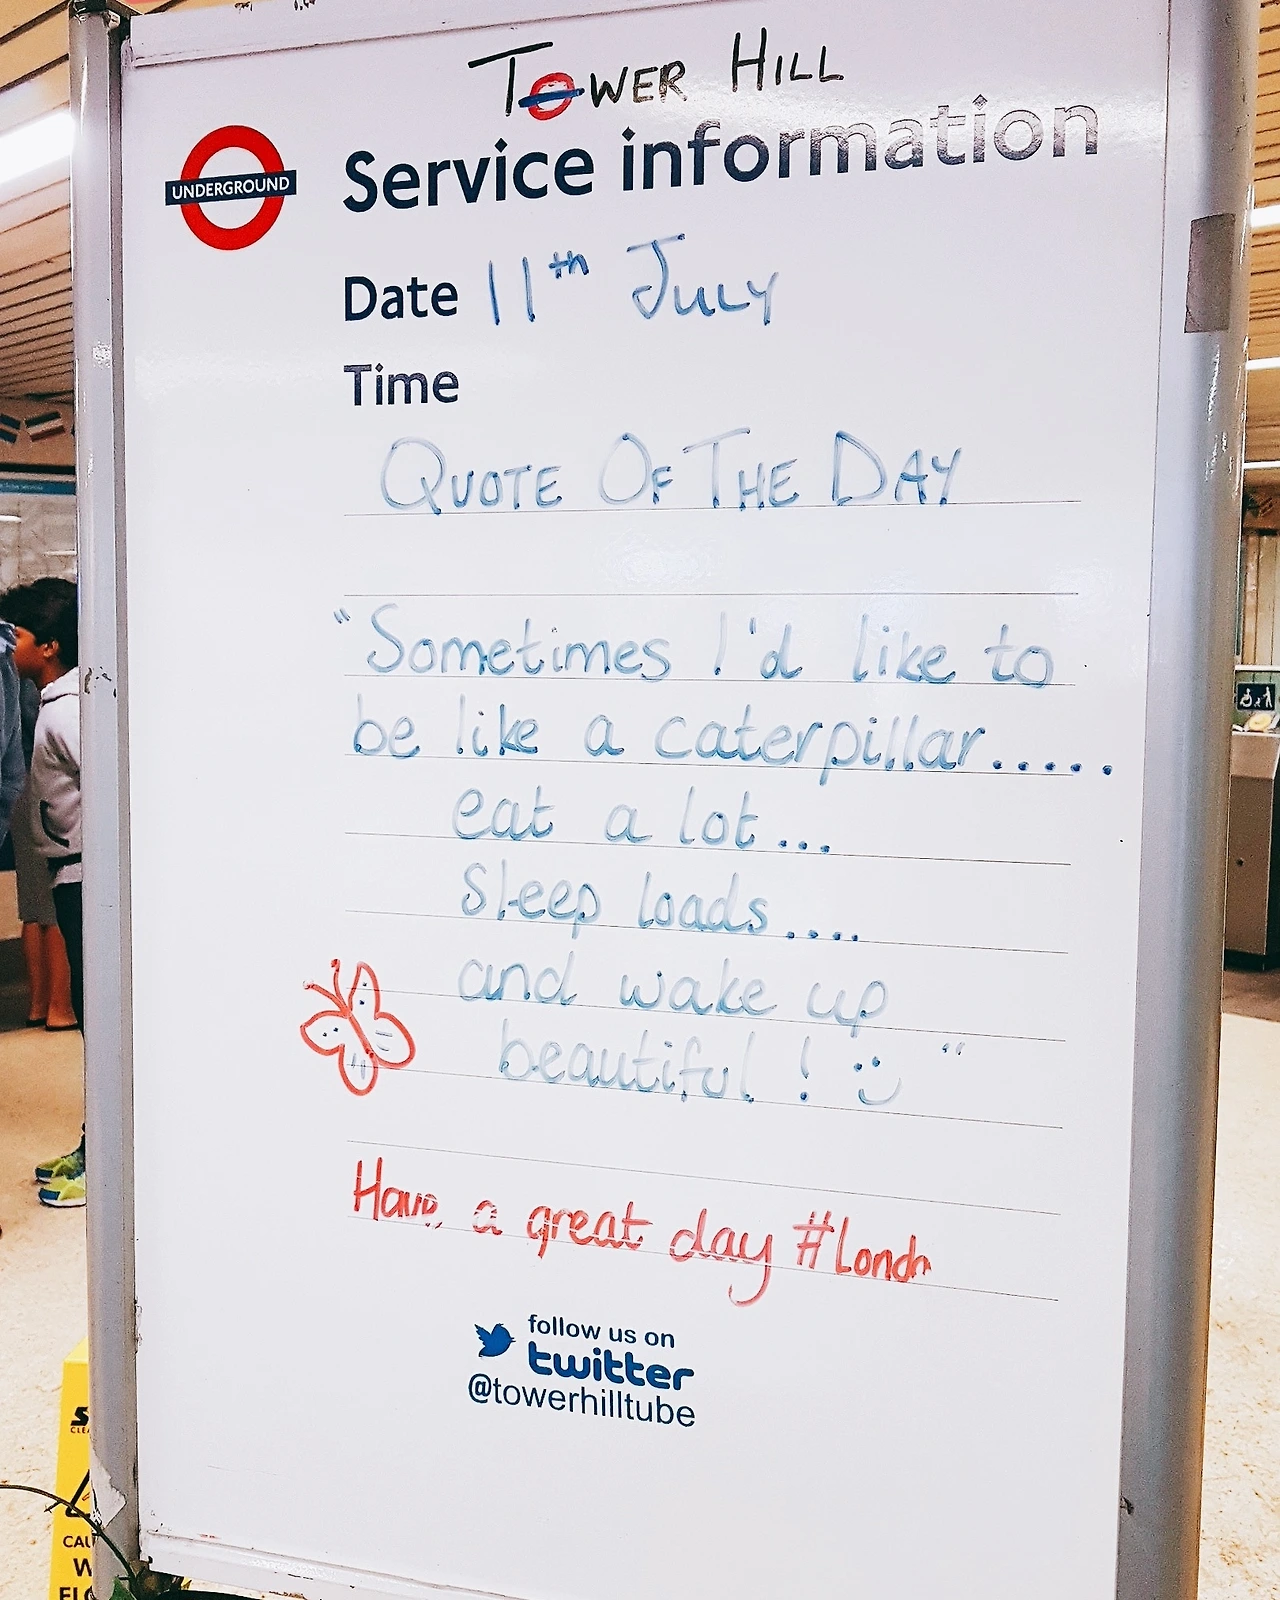 TOWER HILL
UNDERGROUND
Service information
Date 11th JULY
Time
QUOTE OF THE DAY
"Sometimes I'd like to
be like a caterpillar.....
eat a lot...
Sleep loads....
and wake up
beautiful! :) "
Have a great day #Londn
follow us on
twitter
@towerhilltube
CAU
W
FLO